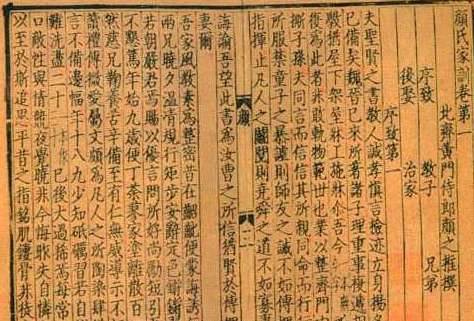 顏氏家訓卷第一
北齊黃門侍郎顏之推撰
序致 教子 兄弟
後娶 治家
序致第一
夫聖賢之書教人誠孝慎言檢迹立身揚名
已備矣魏晉已來所著諸子理重事複遞相
斆猶屋下架屋牀上施牀爾吾今
復為此者非敢軌物範世也業以整齊門內
提撕子孫夫同言而信信其所親同命而行行
所服禁童子之暴謔則師友之誡不如傅婢
指揮止凡人之鬭鬩則堯舜之道不如寡妻
誨諭吾望此書為汝曹之所信猶賢於傅婢
妻爾
吾家風教素為整密昔在齠齔便蒙誨誘
兩兄曉夕溫凊規行矩步安辭定色鏘鏘
若朝嚴君焉賜以優言問所好尚勵短引
不懇篤年始九歲便丁荼蓼家塗離散百
然慈兄鞠養苦辛備至有仁無威導示不
禮傳微愛屬文頗為凡人之所陶染肆
言不備邊幅年十八九少知砥礪習若自
難洗盪二十已後大過稀焉每常
口敵性與情競夜覺曉非今悔昨失自憐
以至於斯追思平昔之指銘肌鏤骨非徒